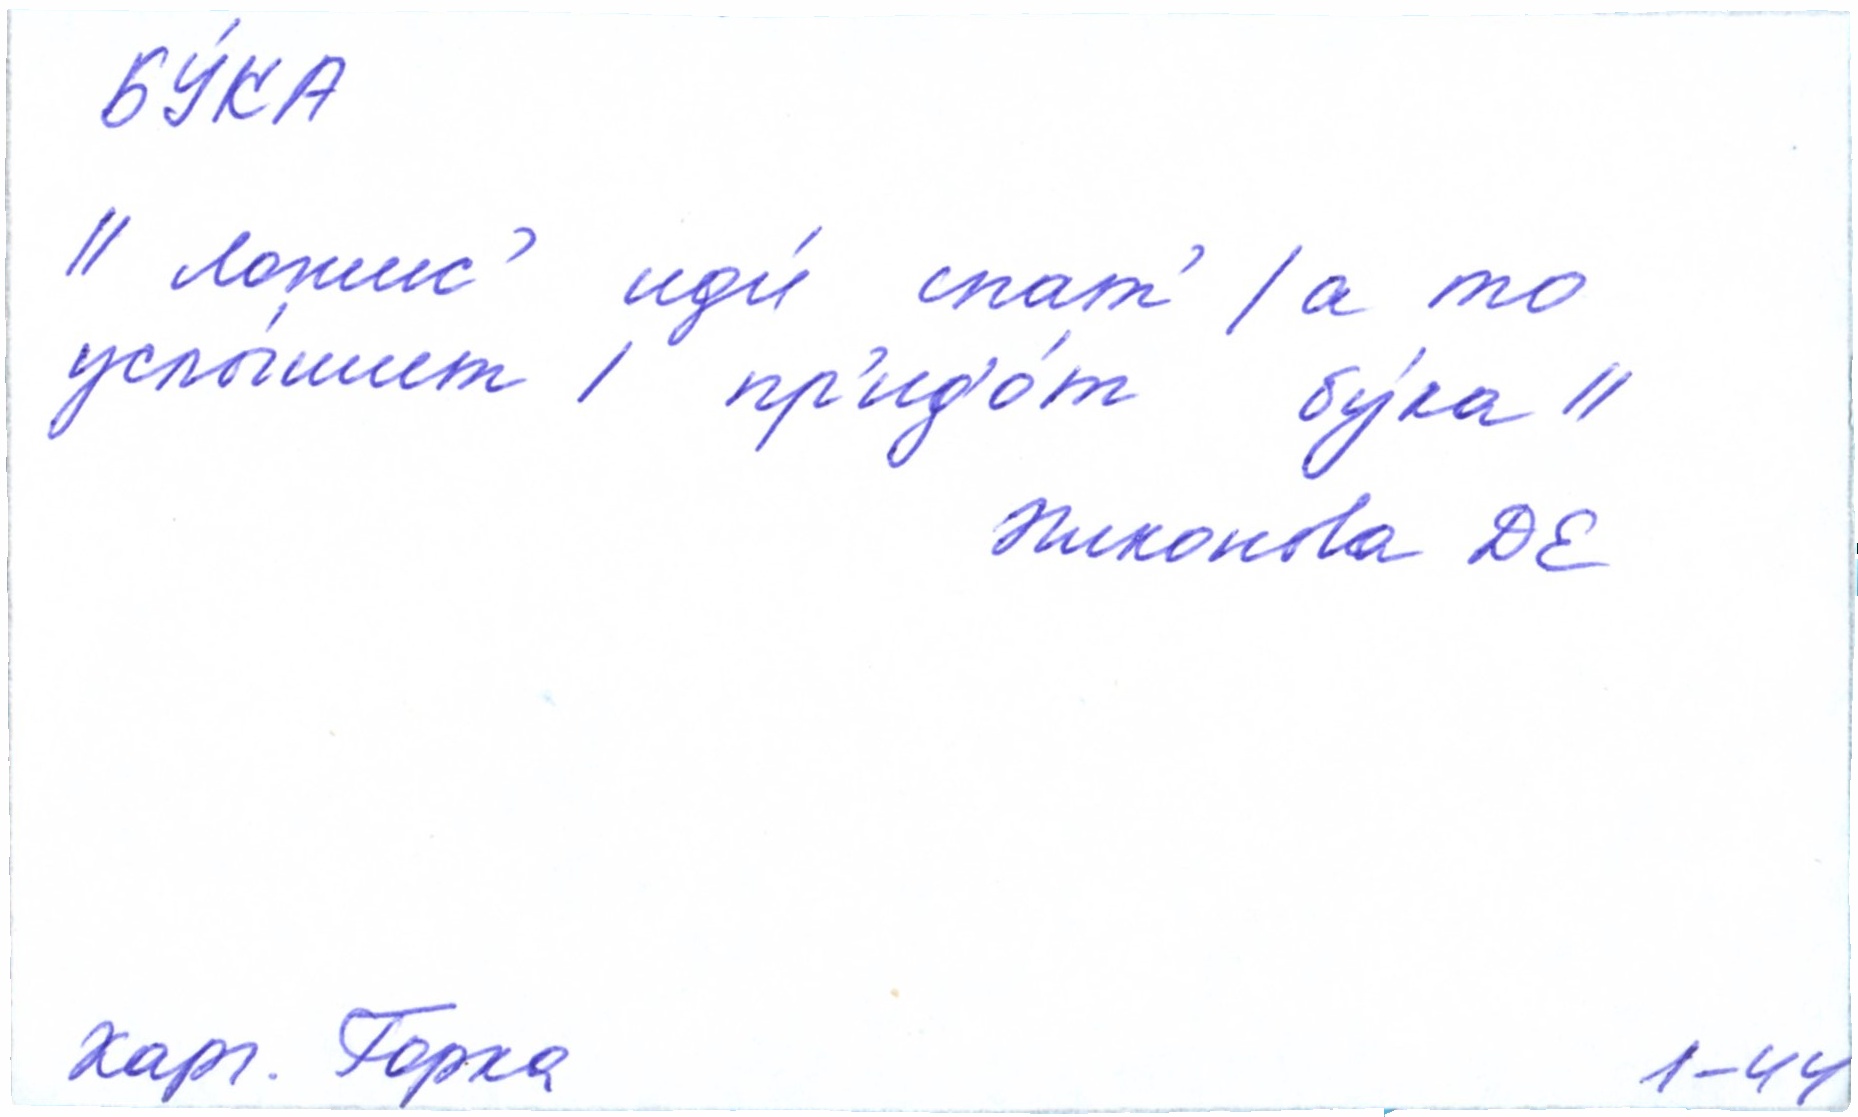 БУ́КА
// ложис' иди́ спат' / а то
услы́шит / пр'ид'о́т бу́ка //
Никонова ДЕ
Харг. Горка
1-44